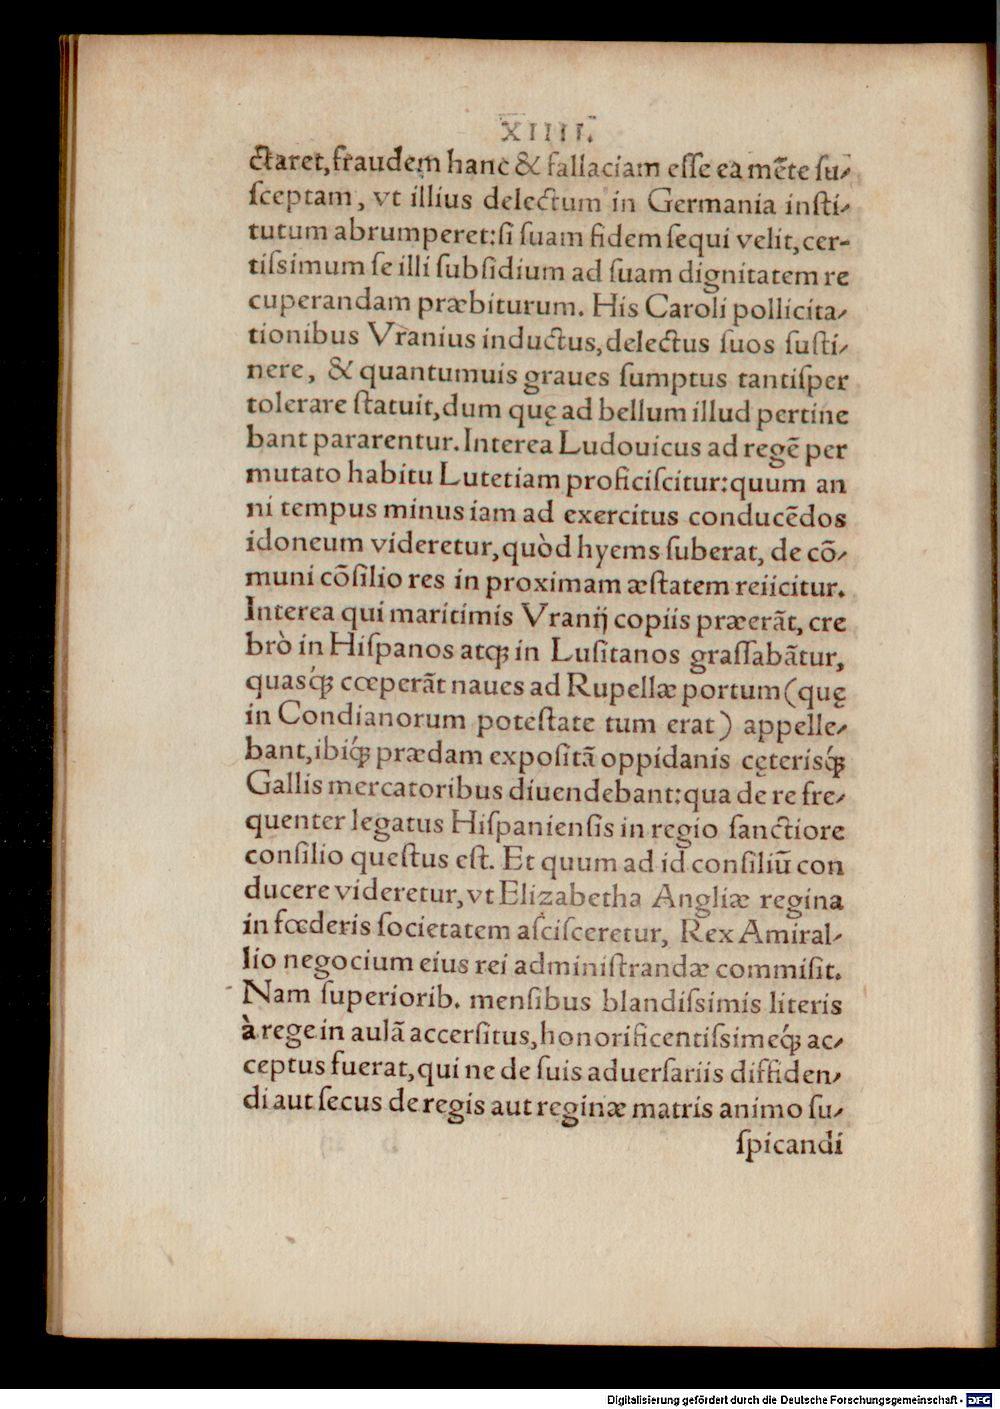 XIIII.
ctaret, fraudem hanc & fallaciam eſſe ea mẽte ſu-
ſceptam, vt illius delectum in Germania inſti-
tutum abrumperet: ſi ſuam fidem ſequi velit, cer-
tiſsimum ſe illi ſubſidium ad ſuam dignitatem re
cuperandam præbiturum. His Caroli pollicita-
tionibus Vranius inductus, delectus ſuos ſuſti-
nere, & quantumuis graues ſumptus tantiſper
tolerare ſtatuit, dum quę ad bellum illud pertine
bant pararentur. Interea Ludouicus ad regẽ per
mutato habitu Lutetiam proficiſcitur: quum an
ni tempus minus iam ad exercitus conducẽdos
idoneum videretur, quòd hyems ſuberat, de cõ-
muni cõſilio res in proximam æſtatem reiicitur.
Interea qui maritimis Vranij copiis præerãt, cre
brò in Hiſpanos atq; in Luſitanos graſſabãtur,
quasq́; cœperãt naues ad Rupellæ portum (quę
in Condianorum poteſtate tum erat) appelle-
bant, ibiq́; prædam expoſitã oppidanis cęterisq́;
Gallis mercatoribus diuendebant: qua de re fre-
quenter legatus Hiſpanienſis in regio ſanctiore
conſilio queſtus eſt. Et quum ad id conſiliũ con
ducere videretur, vt Elizabetha Angliæ regina
in fœderis ſocietatem aſciſceretur, Rex Amiral-
lio negocium eius rei adminiſtrandæ commiſit.
Nam ſuperiorib. menſibus blandiſsimis literis
à rege in aulã accerſitus, honorificentiſsimeq́; ac-
ceptus fuerat, qui ne de ſuis aduerſariis diffiden-
di aut ſecus de regis aut reginæ matris animo ſu-
ſpicandi
Digitalisierung gefördert durch die Deutsche Forschungsgemeinschaft - DFG